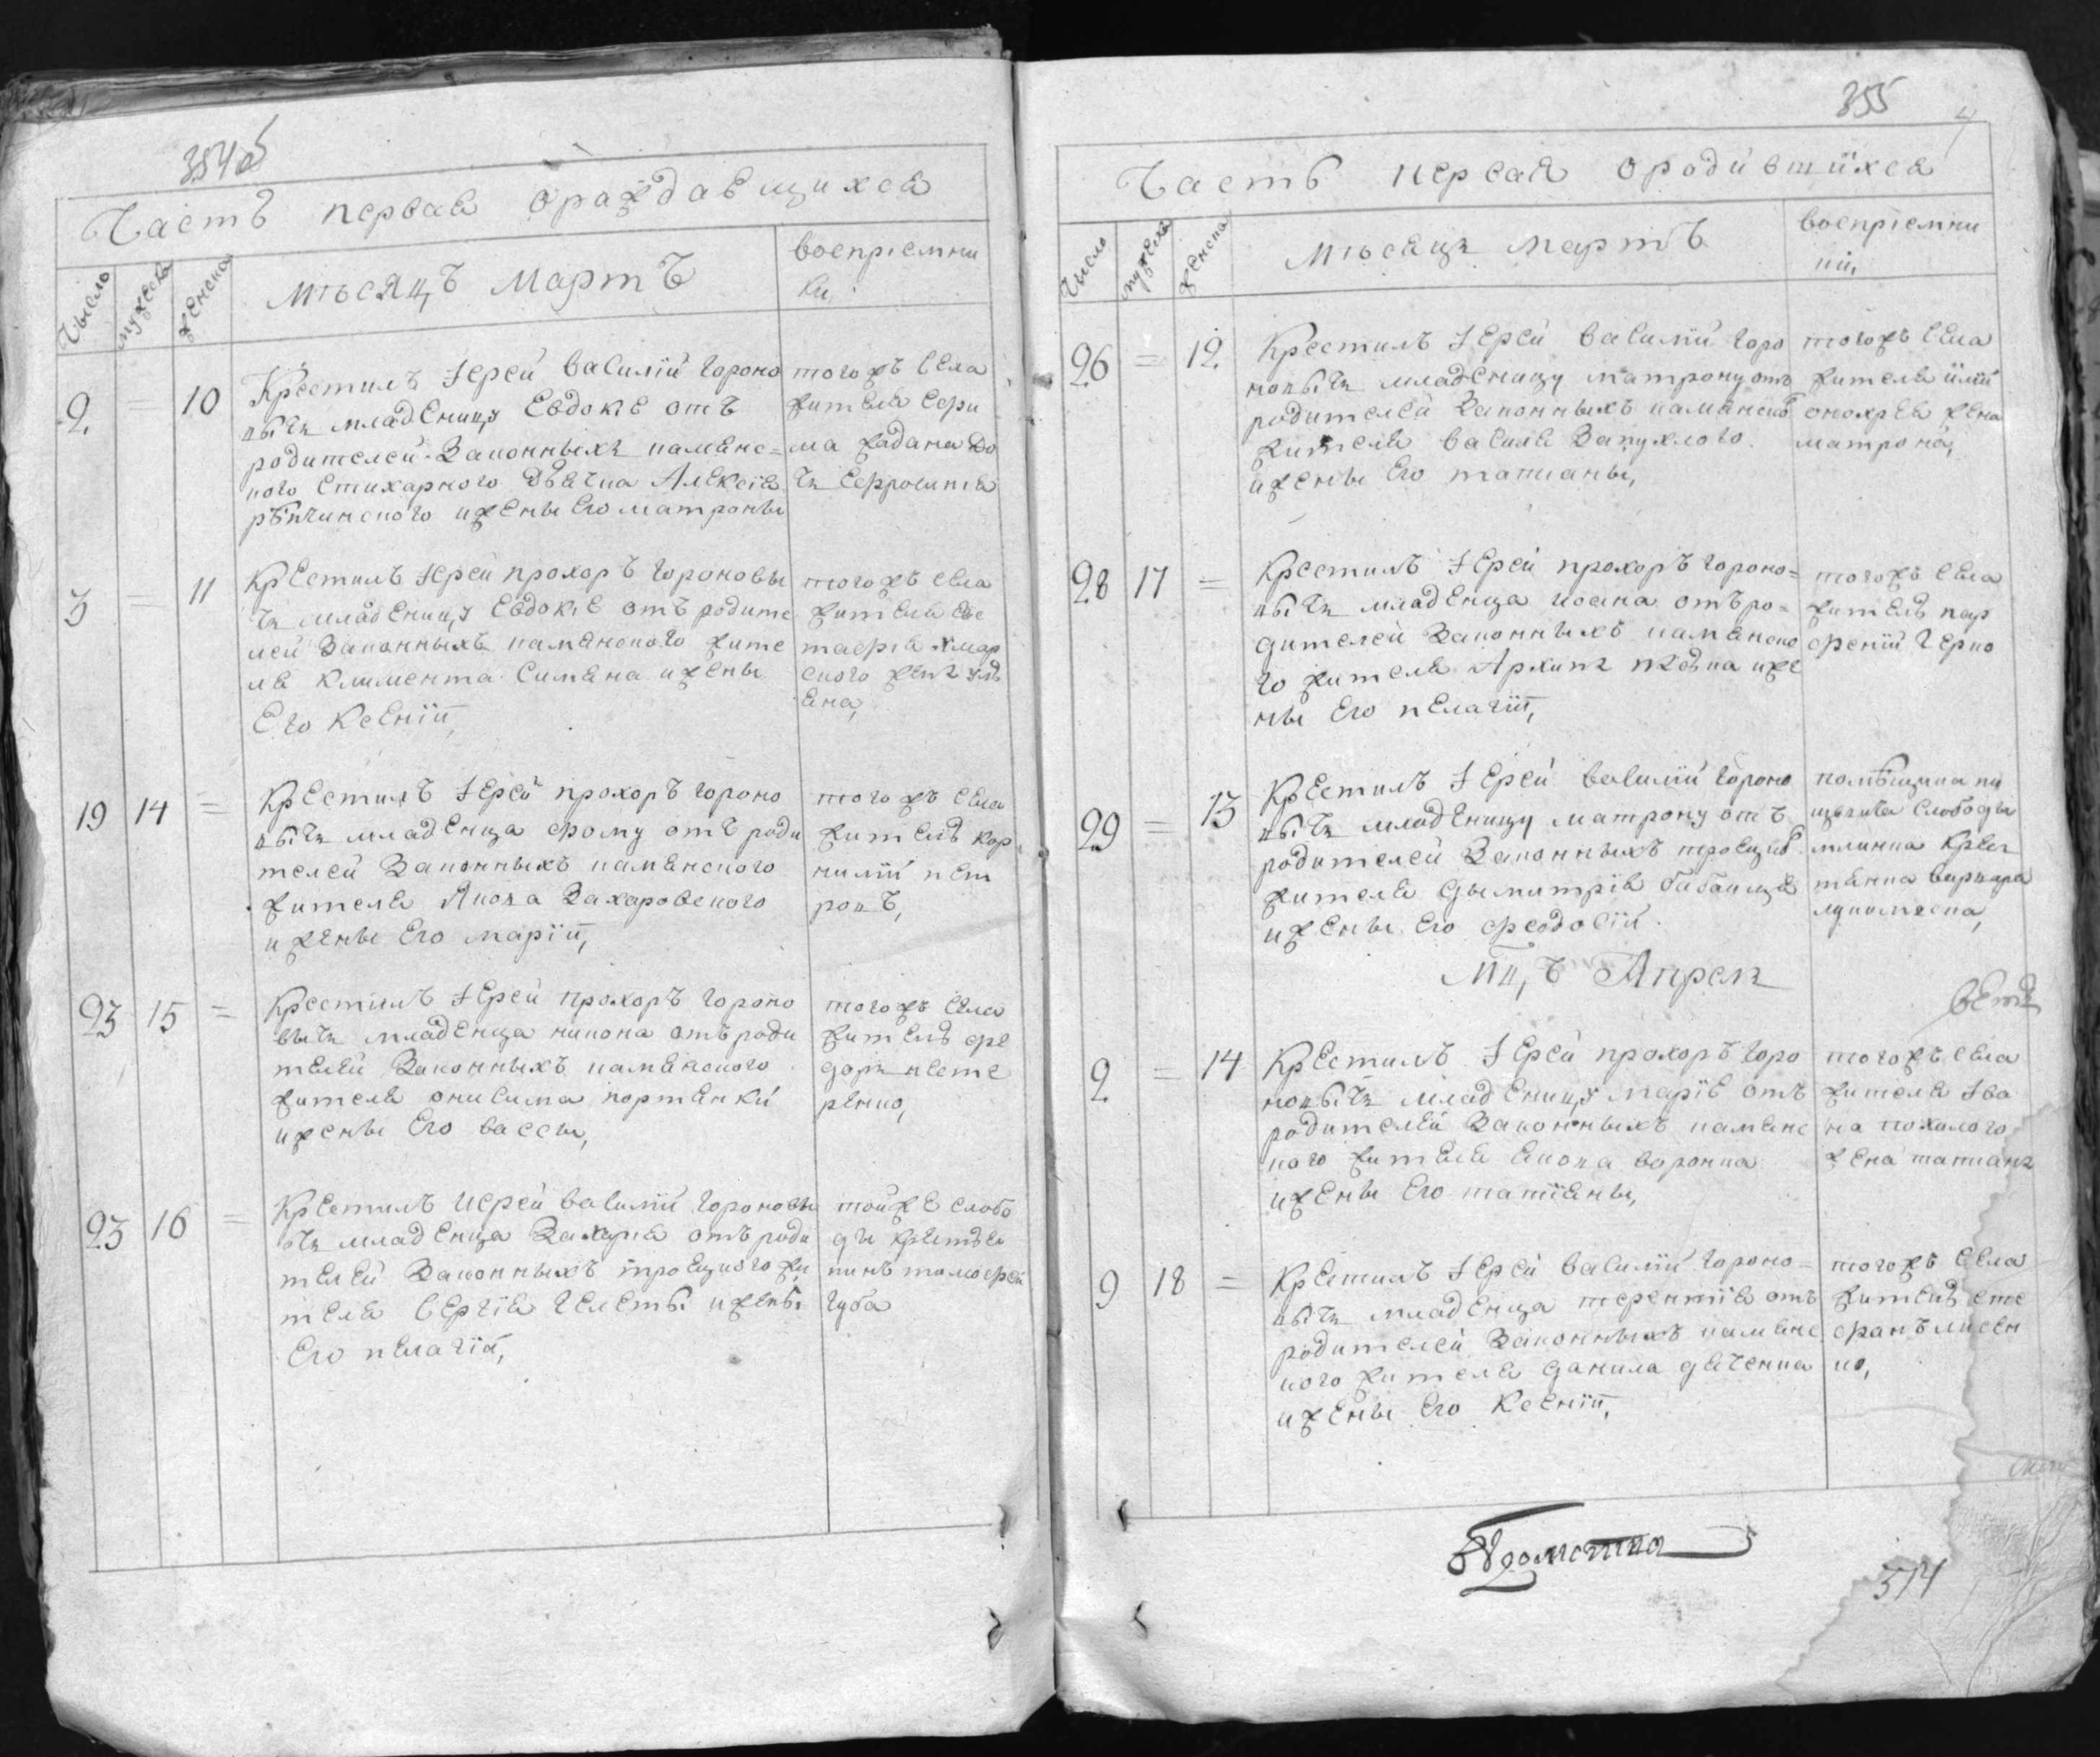 354об
Часть первая ораждаещихся
Число мужеска женска
мѣсяцъ мартъ
воспріемни
ки,
2 10
Крестилъ Іерей василій гороно
вычъ младеницу Евдокіе отъ
родителей законныхъ каменс=
кого стихарного дьячка Алексія
рѣпчинского ижены Его матроны
тогожъ села
жителя
3 11
Крестилъ Іерей прохоръ гороновы
чъ младеницу Евдокіе отъ родите
лей законныхъ каменского жите
ля климента симана ижены
Его Ксеніи,
тогожъ села
жителя Ев
19 14 =
Крестилъ Іерей прохоръ гороно
вычъ младенца фому отъ роди
телей законныхъ каменского
жителя Якова захаровского
иженые Его маріи,
тогожъ села
житель кор
нилій пет
ровъ,
23 15 =
Крестилъ Іерей прохоръ гороно
вычъ младенца никона отъ роди
телей законныхъ каменского
жителя онисима портянки
ижены Его вассы,
тогожъ села
житель фе
доръ несте
ренко,
23 16 =
Крестилъ иерей василій гороновы
чъ младенца захарія отъ роди
телей законныхъ троецкого жи
теля сергія челеты ижены
Его пелагіи,
тойже слобо
ды крестья
нинъ тимофей
губа
355
4
Часть первая ородившихся
Число мужеска женска
мѣсяцъ мартъ
воспріемни
ки,
26 = 12
Крестилъ Іерей василій горо
новычъ младеницу матрону отъ
родителей законныхъ каменског
жителя василя запухлого
ижены Его татианы,
тогожъ села
жителя
онофрея жена
матрона,
28 17 =
Крестилъ Іерей прохоръ гороно=
вычъ младенца иоана отъ ро=
дителей законныхъ каменско
го жителя Архипа иже
ны Его пелагіи,
тогожъ села
житель пар
феній черно
29 = 13
Крестилъ Іерей василій гороно
вычъ младеницу матрону отъ
родителей законныхъ троецког
жителя дымитрія бабанца
ижены Его феодосіи
помѣщика
слободы
крес
тянка варвара
Мцъ Апрель
2 = 14
Крестилъ Іерей прохоръ горо
новычъ младеницу маріе отъ
родителей законныхъ каменс
кого жителя Якова воронка
ижены Его татіяны,
тогожъ села
жителя Іва
на похилого
жена татиана
9 18 =
Крестилъ Іерей василій гороно=
вычъ младенца терентія отъ
родителей законныхъ каменс
кого жителя данила дяченка
ижены Его Ксеніи,
тогожъ села
житель сте
фанъ лисен
ко,
514